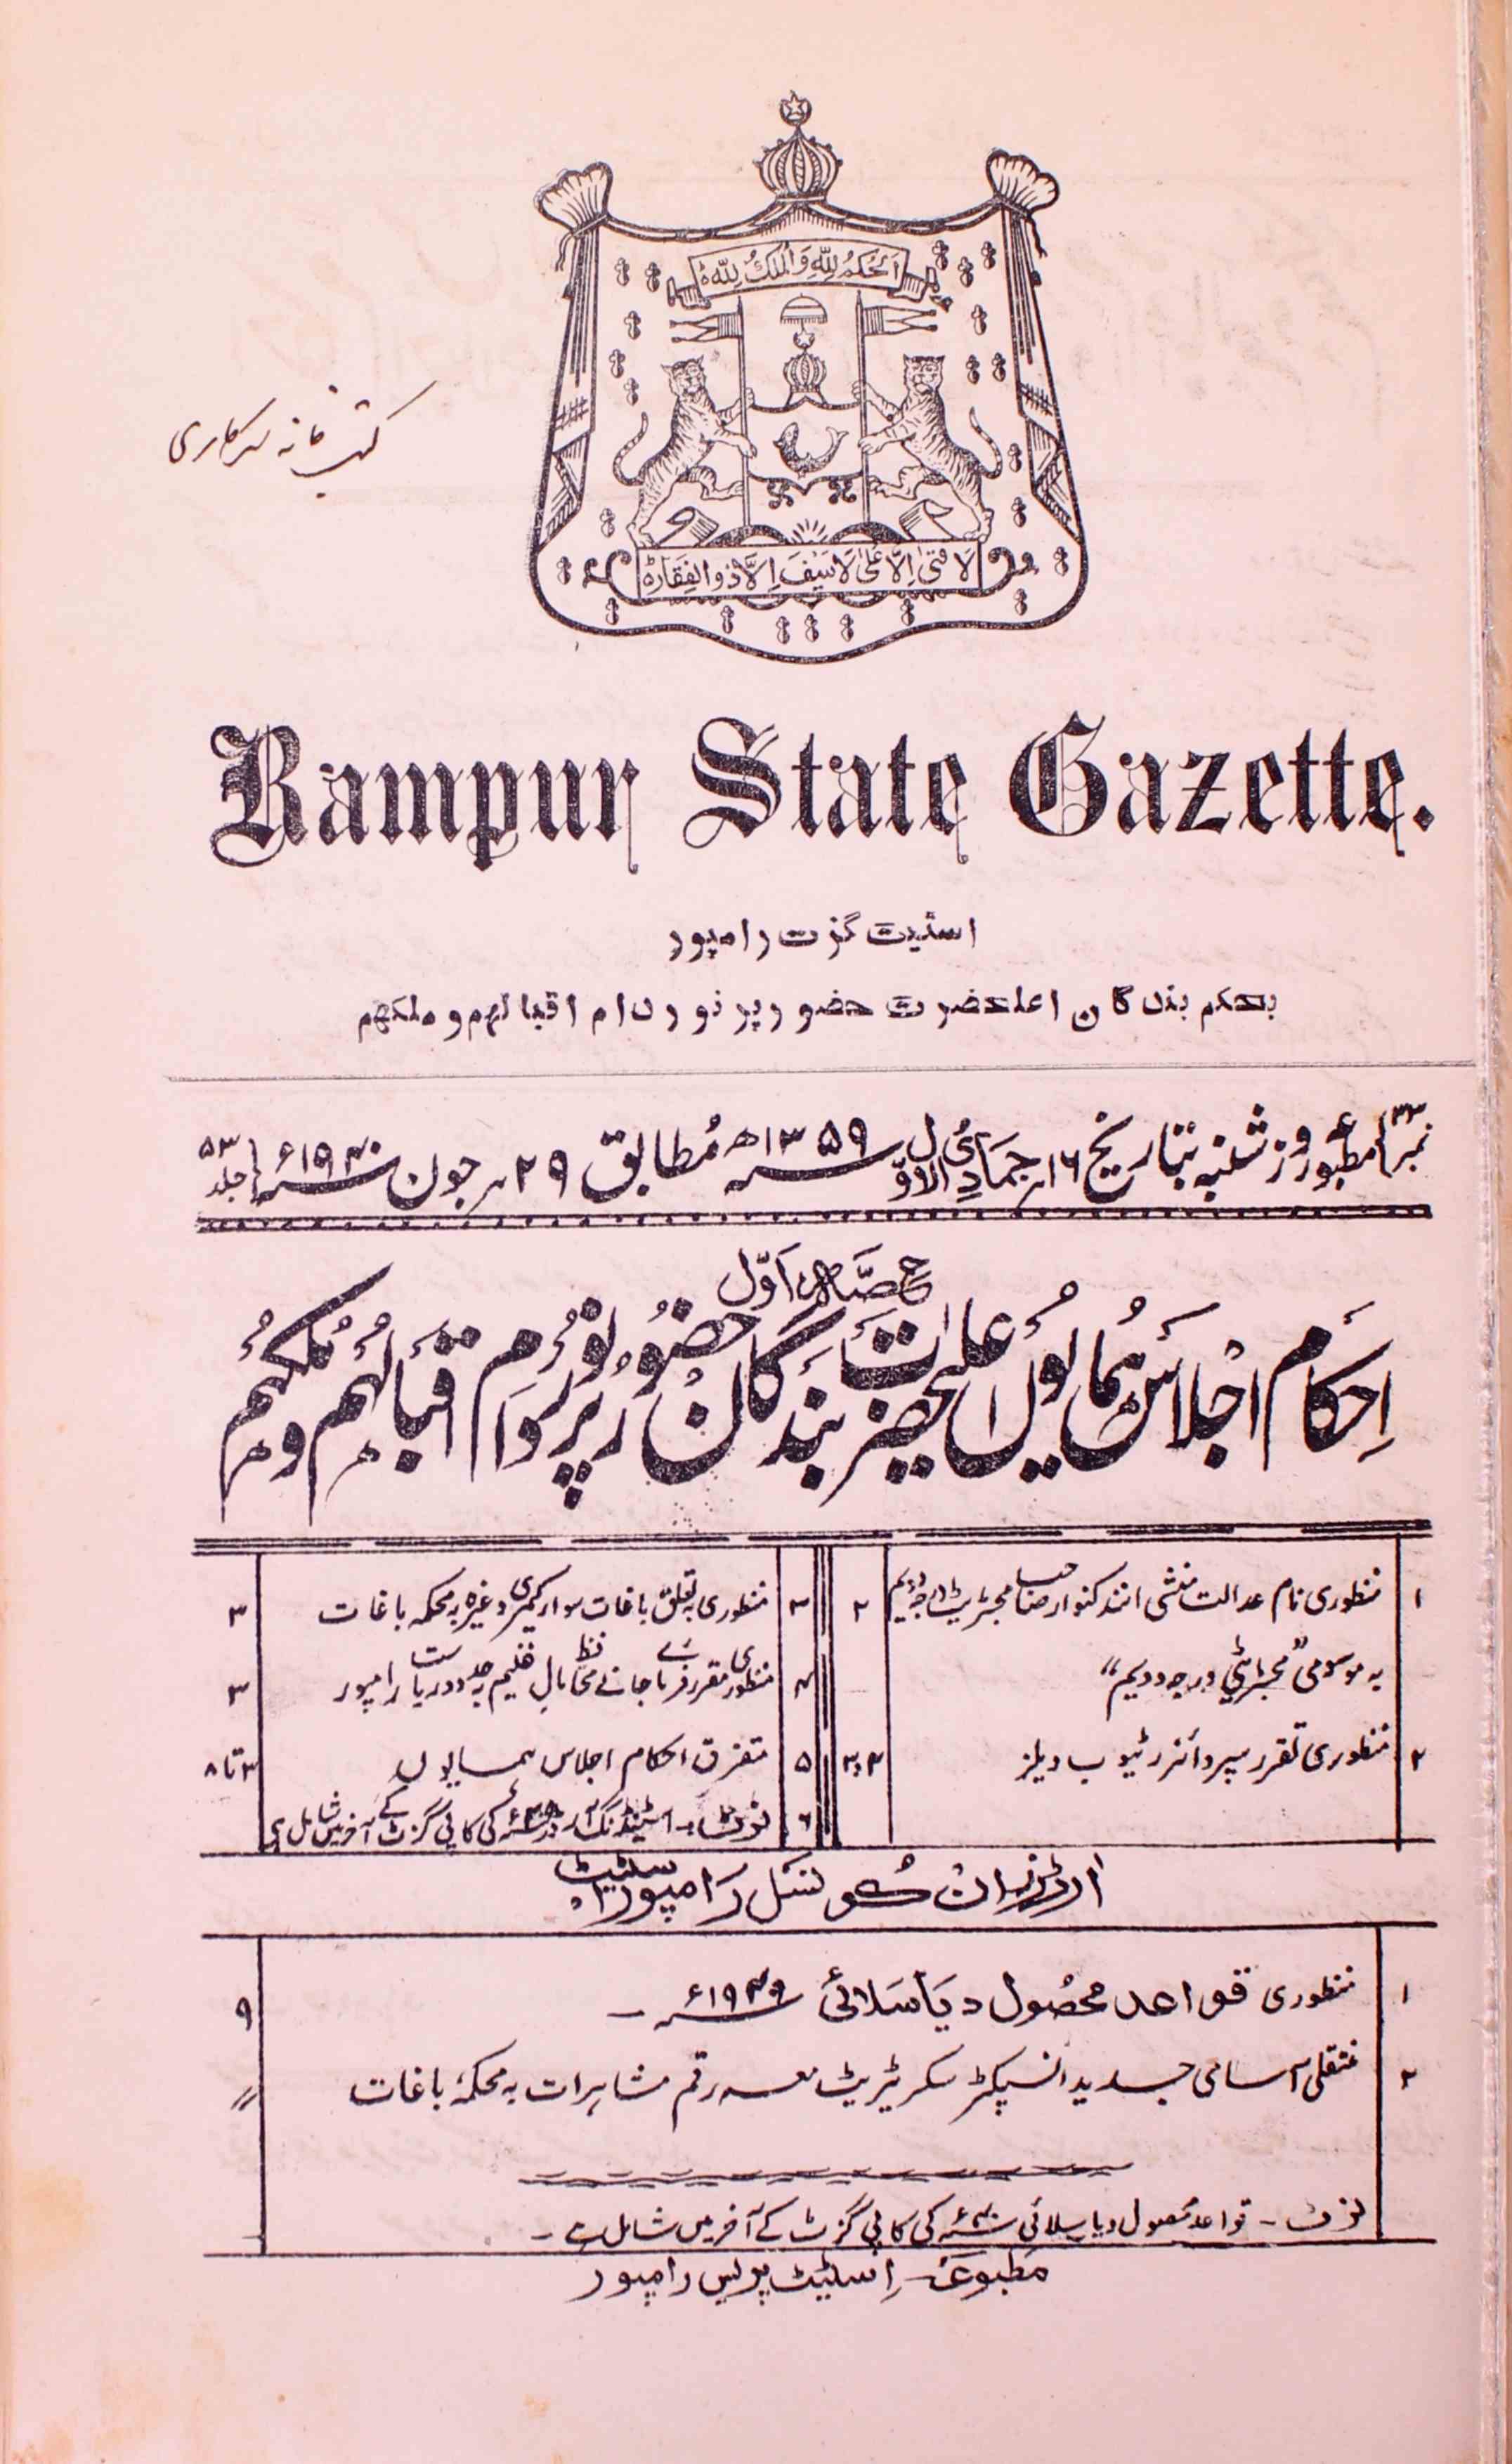 اَلْحُکْمُ لِلّٰہِ وَالْمُلْکُ لِلّٰہِ
کتب خانہ سرکاری
لَا فَتٰی اِلَّا عَلِی لَا سَیْفَ اِلَّا ذُو الْفِقَار
Rampur State Gazette.
اسٹیٹ گزٹ رامپور
بحکم بندگان اعلحضرت حضور پرنور دام اقبالہم و ملکہم
نمبر ۳۳ مطبوعہ روز شنبہ بتاریخ ۱۶ر جمادی الاوّل سنہ ۱۳۵۹ھ مُطابق ۲۹ر جون سنہ ۱۹۴۰ء جلد ۵۳
حِصَّہ اَوّل
اَحکام اجلاس ہمایوں اعلٰحضرت بندگان حضور پرنور دام اقبالہم و ملکہم
۱ منظوری نام عدالت منشی انند کنوار صاحب مجسٹریٹ درجہ دویم ۲
بہ موسومی "مجسٹریٹی درجہ دویم"
۲ منظوری تقرر سپروائزر ٹیوب ویلز ۲و۳
۳ منظوری تعلق باغات سوار کمری وغیرہ بہ محکمہ باغات ۳
۴ منظوری مقرر فرمائے جانے محافظ بال غنیم بہ حدود ریاست رامپور ۳
۵ متفرق احکام اجلاس ہمایوں ۳ تا ۸
۶ نوٹ:۔ اسٹینڈنگ آرڈر سنہ ۳۹ء کی کاپی گزٹ کے آخر میں شامل ہی
ارڈرزان کونسل رامپور اسٹیٹ
۱ منظوری قواعد محصُول دیاسلائی سنہ ۱۹۳۹ء ۔ ۹
۲ منتقلی آسامی جدید انسپکٹر سکریٹریٹ معہ رقم مشاہرات بہ محکمۂ باغات ״
نوٹ ۔ قواعد محصول دیاسلائی سنہ ۴۰ء کی کاپی گزٹ کے آخر میں شامل ہے ۔
مَطبوعہ اسٹیٹ پریس رامپور